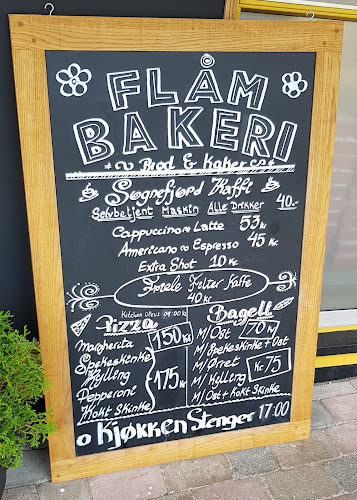 FLÅM
BAKERI
Brød & Kaker
Sognefjord Kaffi
Selvbetjent Maskin Alle Drikker 40.-
Cappuccino Latte 53 kr
Americano Espresso 45 kr.
Extra Shot 10 kr.
Filter Kaffe
40 kr.
Kitchen Opens 09:00
Pizza
Margherita 150 kr
Spekeskinke
Kylling
Pepperoni 175 kr
Kokt Skinke
Bagell
M/Ost Kr 70
M/Spekeskinke + Ost
M/Ørret
M/Kylling Kr 75
M/Ost + Kokt Skinke
Kjøkken Stenger 17:00